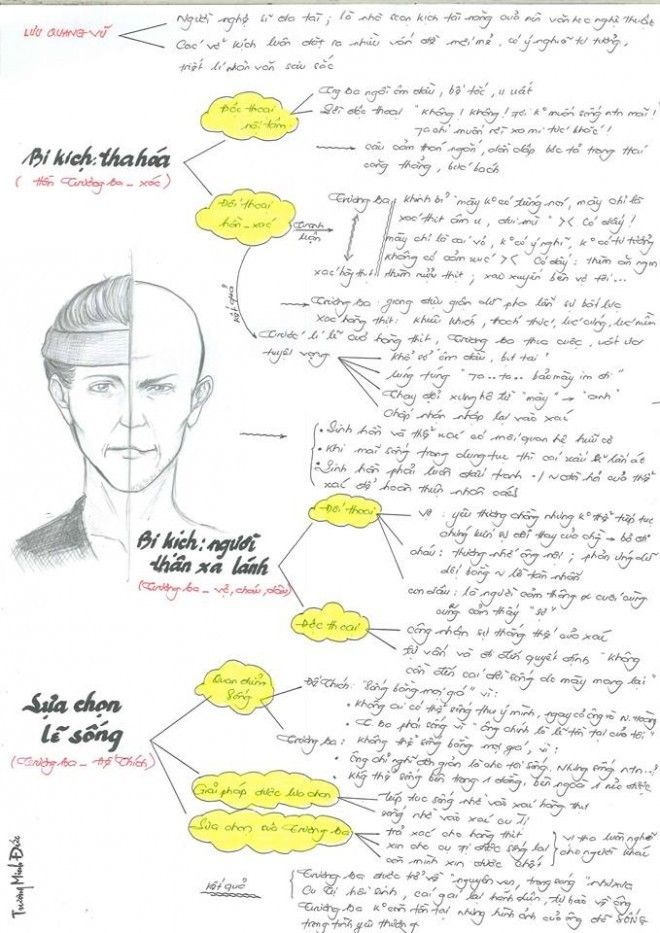 LƯU QUANG VŨ
Người nghệ sĩ đa tài; là nhà soạn kịch tài năng của nền văn học nghệ thuật
Các vở kịch luôn đặt ra nhiều vấn đề mới mẻ, có ý nghĩa tư tưởng,
triết lí nhân văn sâu sắc
Bi kịch: tha hóa
(Hồn Trương Ba - xác)
Độc thoại
nội tâm
Tr Ba ngồi ôm đầu, bế tắc, u uất
Lời độc thoại "Không! Không! Tôi k° muốn sống ntn mãi!
Ta chỉ muốn rời xa mi tức khắc!
câu cảm thán ngắn, dồn dập bộc lộ trạng thái
căng thẳng, bức bách
Đối thoại
hồn - xác
Tranh
luận
Trương Ba: khinh bỉ "mày k° có tiếng nói, mày chỉ là
xác thịt âm u, đui mù" >< Có đấy!
mày chỉ là cái vỏ, k° có ý nghĩ, k° có tư tưởng
không có cảm xúc" >< Có đấy: thèm ăn ngon
xác hàng thịt thèm rượu thịt; xao xuyến bên vợ tôi...
kết quả
Trương Ba: giọng
xác hàng thịt: khiêu khích, thách thức, lúc cứng, lúc mềm
Trước lí lẽ của hàng thịt, Trương Ba thua cuộc,
tuyệt vọng
khổ sở ôm đầu, bịt tai!
lúng túng "Ta... ta... bảo mày im đi"
Thay đổi xưng hô từ "mày" → "anh"
Chấp nhận nhập lại vào xác
• Linh hồn và thể xác có mối quan hệ hữu cơ
• Khi mãi sống trong dung tục thì cái xấu sẽ lấn át
• Linh hồn phải luôn đấu tranh của thể
xác để hoàn thiện nhân cách
Bi kịch: người
thân xa lánh
(Trương Ba - vợ, cháu, dâu)
Đối thoại
vợ: yêu thương chồng nhưng k° thể tiếp tục
chứng kiến sự đổi thay của chg → bỏ đi
cháu: thương nhớ ông nội; phản ứng dữ
dội bằng lí lẽ tàn nhẫn
con dâu: là người cảm thông cuối cùng
cũng cảm thấy "sợ"
Độc thoại
công nhận sự thắng thế của xác
tự vấn và đi đến quyết định "không
cần đến cái đời sống do mày mang lại"
Lựa chọn
lẽ sống
(Trương Ba - Đế Thích)
Quan điểm
sống
Đế Thích: "sống bằng mọi giá" vì:
• không ai có thể sống theo ý mình, ngay cả ông và N. Hoàng
• T. Ba phải sống vì "ông chính là lẽ tồn tại của tôi."
Trương Ba: không thể sống bằng mọi giá, vì:
• Ông chỉ nghĩ đơn giản là cho tôi sống, nhưng sống ntn...?
• Không thể sống bên trong 1 đằng, bên ngoài 1 nẻo được
Giải pháp được lựa chọn
tiếp tục sống nhờ vào xác hàng thịt
sống nhờ vào xác cu Tị
Lựa chọn của Trương Ba
trả xác cho hàng thịt
xin cho cu Tị được sống lại
còn mình xin được chết
vị tha luôn nghĩ
cho người khác
kết quả
Trương Ba được trở về "nguyên vẹn, trong sáng" như xưa
Cu Tị hồi sinh, cái gái lại
Trương Ba k° còn tồn tại nhưng hình ảnh của ông để SỐNG
trong tình yêu thương
Trương Minh Đức